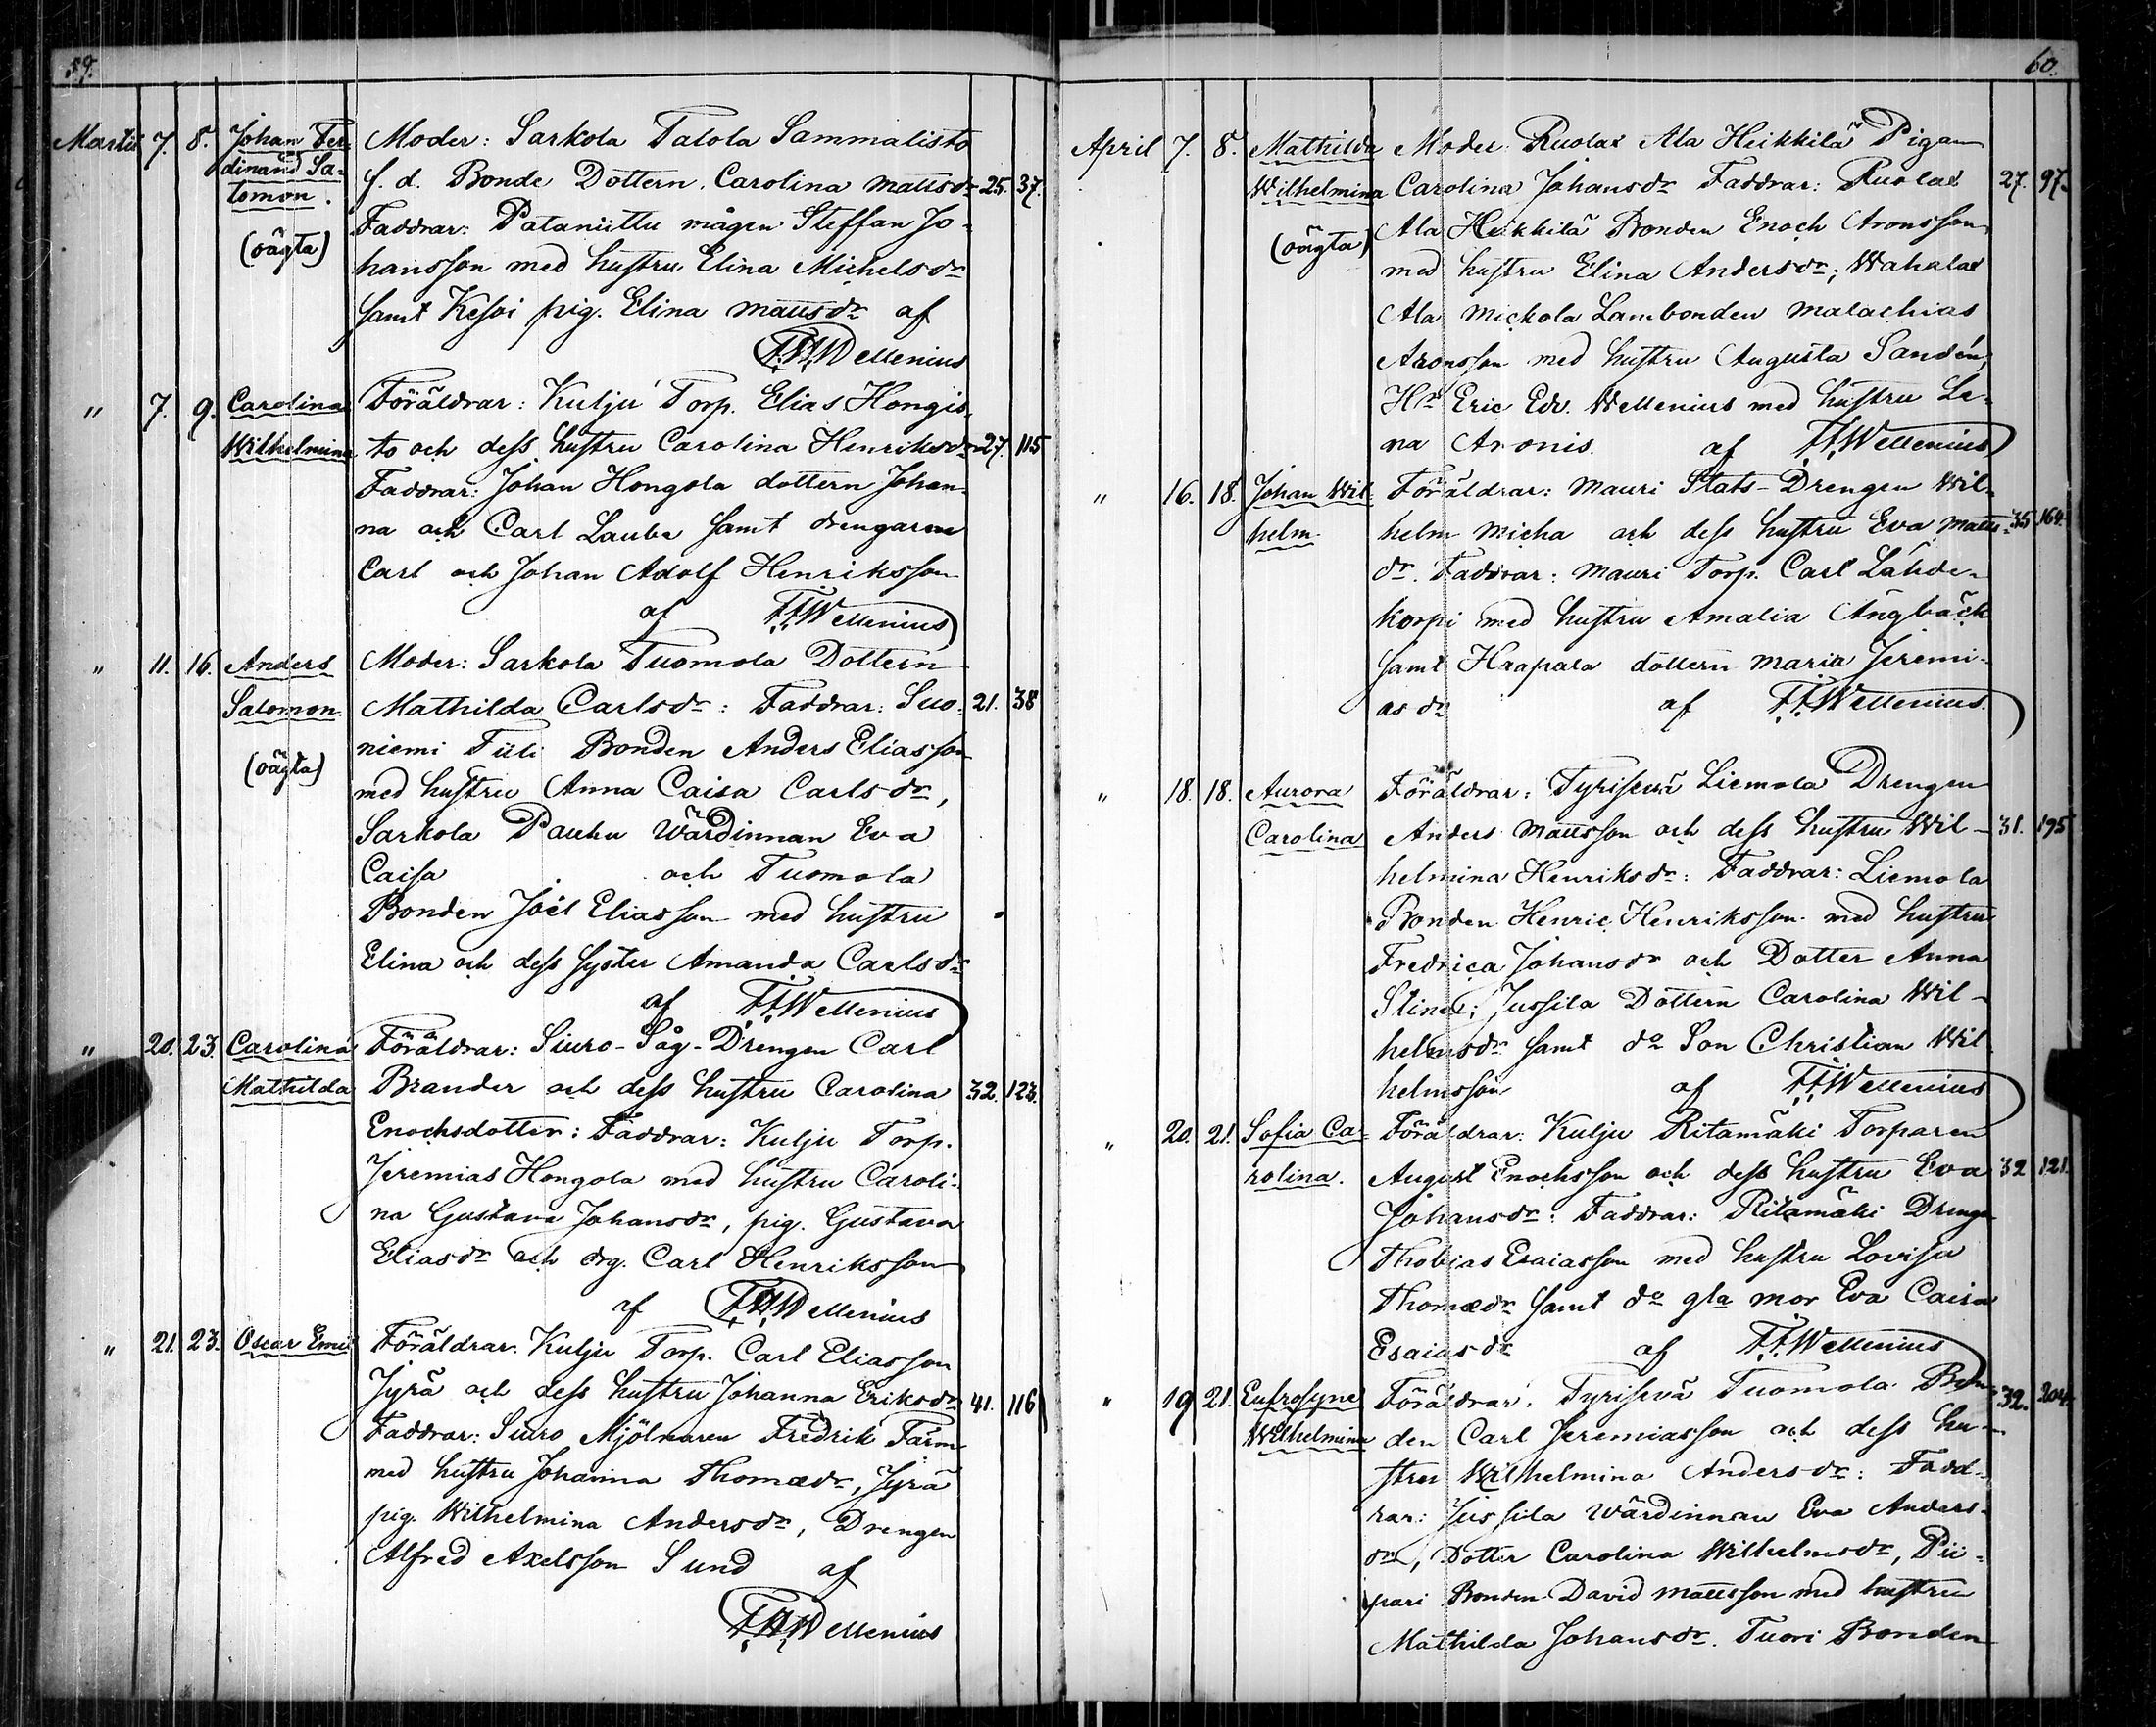 59.
Martii 7. 8. Johan Fer- Moder: Sarkola Talola Sammalisto
dinand Sa- f. d. Bonde Dottern. Carolina Mattsdr 25. 37.
lomon. Faddrar: Pataniittu mågen Steffan Jo-
(oägta) hansson med hustru Elina Michelsdr
samt Kesoi pig. Elina Mattsdr af
F.F.Wellenius
" 7. 9. Carolina Föräldrar: Kulju Torp. Elias Hongis-
Wilhelmina to och dess hustru Carolina Henriksdr 27. 115
Faddrar: Johan Hongola dottern Johan-
na och Carl Laube samt drengarne
Carl och Johan Adolf Henriksson
af F.F.Wellenius
" 11. 16. Anders Moder: Sarkola Tuomola Dottern
Salomon. Mathilda Carlsdr: Faddrar: Suo- 21. 38
niemi Tüli Bonden Anders Eliasson
(oägta) med hustru Anna Caisa Carlsdr,
Sarkola Pauhu Wärdinnan Eva
Caisa och Tuomola
Bonden Joël Eliasson med hustru
Elina och dess syster Amanda Carlsdr
af F.F.Wellenius
" 20. 23. Carolina Föräldrar: Siuro-Såg-Drengen Carl
Mathilda Brander och dess hustru Carolina 32. 123.
Enochsdotter: Faddrar: Kulju Torp.
Jeremias Hongola med hustru Caroli-
na Gustava Johansdr, pig. Gustava
Eliasdr och drg. Carl Henriksson
af F.F.Wellenius
" 21. 23. Oscar Emil Föräldrar. Kulju Torp. Carl Eliasson
Jyrä och dess hustru Johanna Eriksdr 41. 116
Faddrar: Siuro Mjölnaren Fredrik Färm
med hustru Johanna Thomædr, Jyrä
pig. Wilhelmina Andersdr, Drengen
Alfred Axelsson Sund af
F.F.Wellenius
60.
April 7. 8. Mathilda Moder Ruolax Ala Heikkilä Pigan
Wilhelmina Carolina Johansdr Faddrar: Ruolax 27. 97.
(oägta) Ala Heikkilä Bonden Enoch Aronsson
med hustru Elina Andersdr; Wahalax
Ala Mickola Lambonden Malachias
Aronsson med hustru Augusta Sandén,
Hr Eric Edv. Wellenius med hustru Le-
na Aronis. af F.F.Wellenius
" 16. 18. Johan Wil- Föräldrar: Mauri Stats-Drengen Wil-
helm. helm Micha och dess hustru Eva Matts- 35 164.
dr. Faddrar: Mauri Torp. Carl Lähde-
korpi med hustru Amalia Ängbäck
samt Haapara dottern Maria Jeremi-
asdr af F.F.Wellenius.
" 18. 18. Aurora Föräldrar: Tyrisevä Liemola Drengen
Carolina Anders Mattsson och dess hustru Wil- 31. 195
helmina Henriksdr: Faddrar: Liemola
Bonden Henric Henriksson med hustru
Fredrica Johansdr och Dotter Anna
Stina; Jussila Dottern Carolina Wil-
helmsdr samt do Son Christian Wil-
helmsson af F.F.Wellenius
" 20. 21. Sofia Ca- Föräldrar: Kulju Ritamäki Torparen
rolina. August Enochsson och dess hustru Eva 32 121.
Johansdr: Faddrar: Ritamäki Dreng
Thobias Esaiasson med hustru Lovisa
Thomædr samt do gla mor Eva Caisa
Esaiasdr af F.F.Wellenius
" 19 21. Eufrosyne Föräldrar. Tyrisevä Tuomola Bon- 32. 204.
Wilhelmina den Carl Jeremiasson och dess hu-
stru Wilhelmina Andersdr: Fadd-
rar: Jussila Wärdinnan Eva Anders-
dr, Dotter Carolina Wilhelmsdr, Pii-
pari Bonden David Mattsson med hustru
Mathilda Johansdr. Tuori Bonden